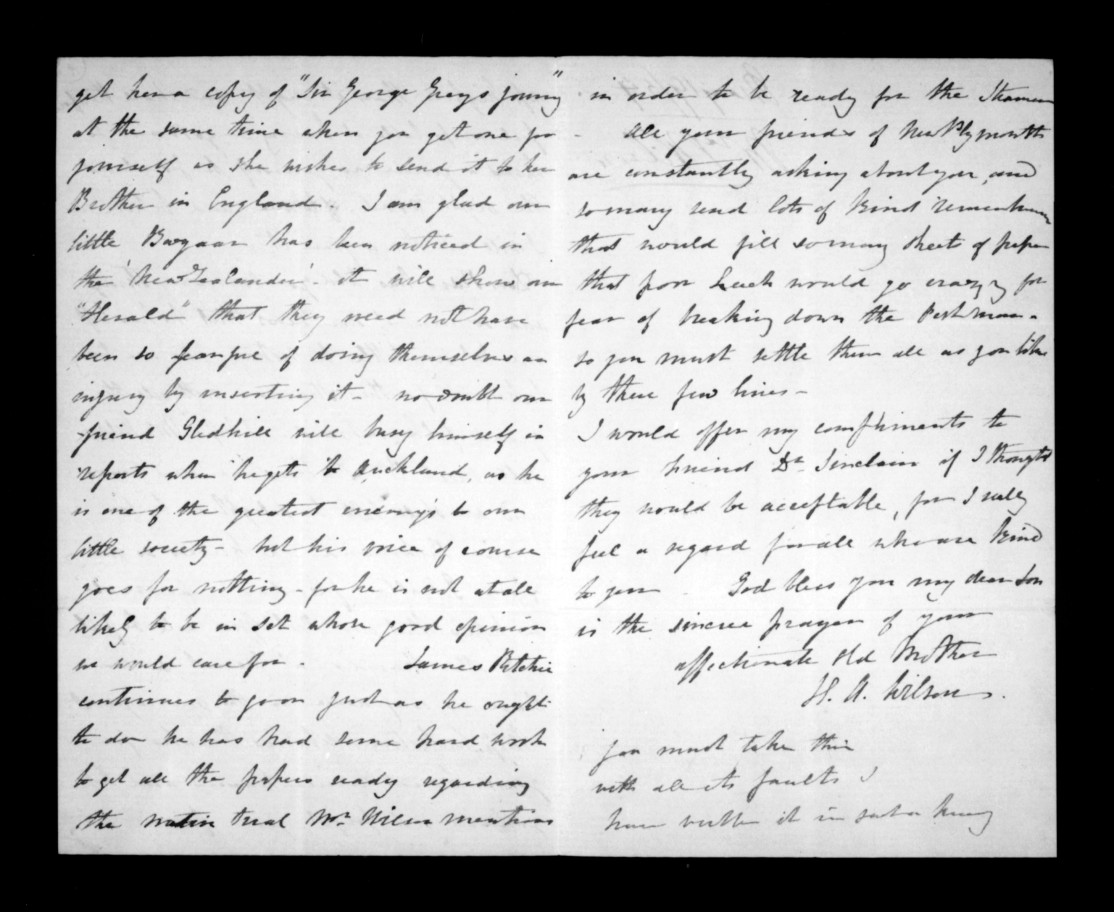 get her a copy of "Sir George Greys journey"
at the same time when you get one for
yourself as she wishes to send it to her
Brother in England. I am glad our
little Bazaar has been noticed in
the 'New Zealander' - it will show our
"Herald" that they need not have
been so fearful of doing themselves an
injury by inserting it - no doubt our
friend Gledhill will busy himself in
reports when he gets to Auckland, as he
is one of the greatest enemy's to our
little society - but his voice of course
goes for nothing - for he is not at all
likely to be in set whose good opinion
we would care for - James Ritchie
continues to go on just as he ought
to do he has had some hard work
to get all the papers ready regarding
the native trial Mr Wilson mentions
in order to be ready for the Steamer
- All your friends of New Plymouth
are constantly asking about you, and
so many send lots of kind remembrances
that would fill so many sheet of paper
that poor would go crazy for
fear of breaking down the Postman -
so you must settle them all as you like
by these few lines -
I would offer my compliments to
your friend Dr. Sinclair if I thought
they would be acceptable, for I really
feel a regard for all who are kind
to you - God bless you my dear Son
is the sincere prayer of your
affectionate old Mother
H. A. Wilson.
you must take this
with all its faults I
have written it in such a hurry